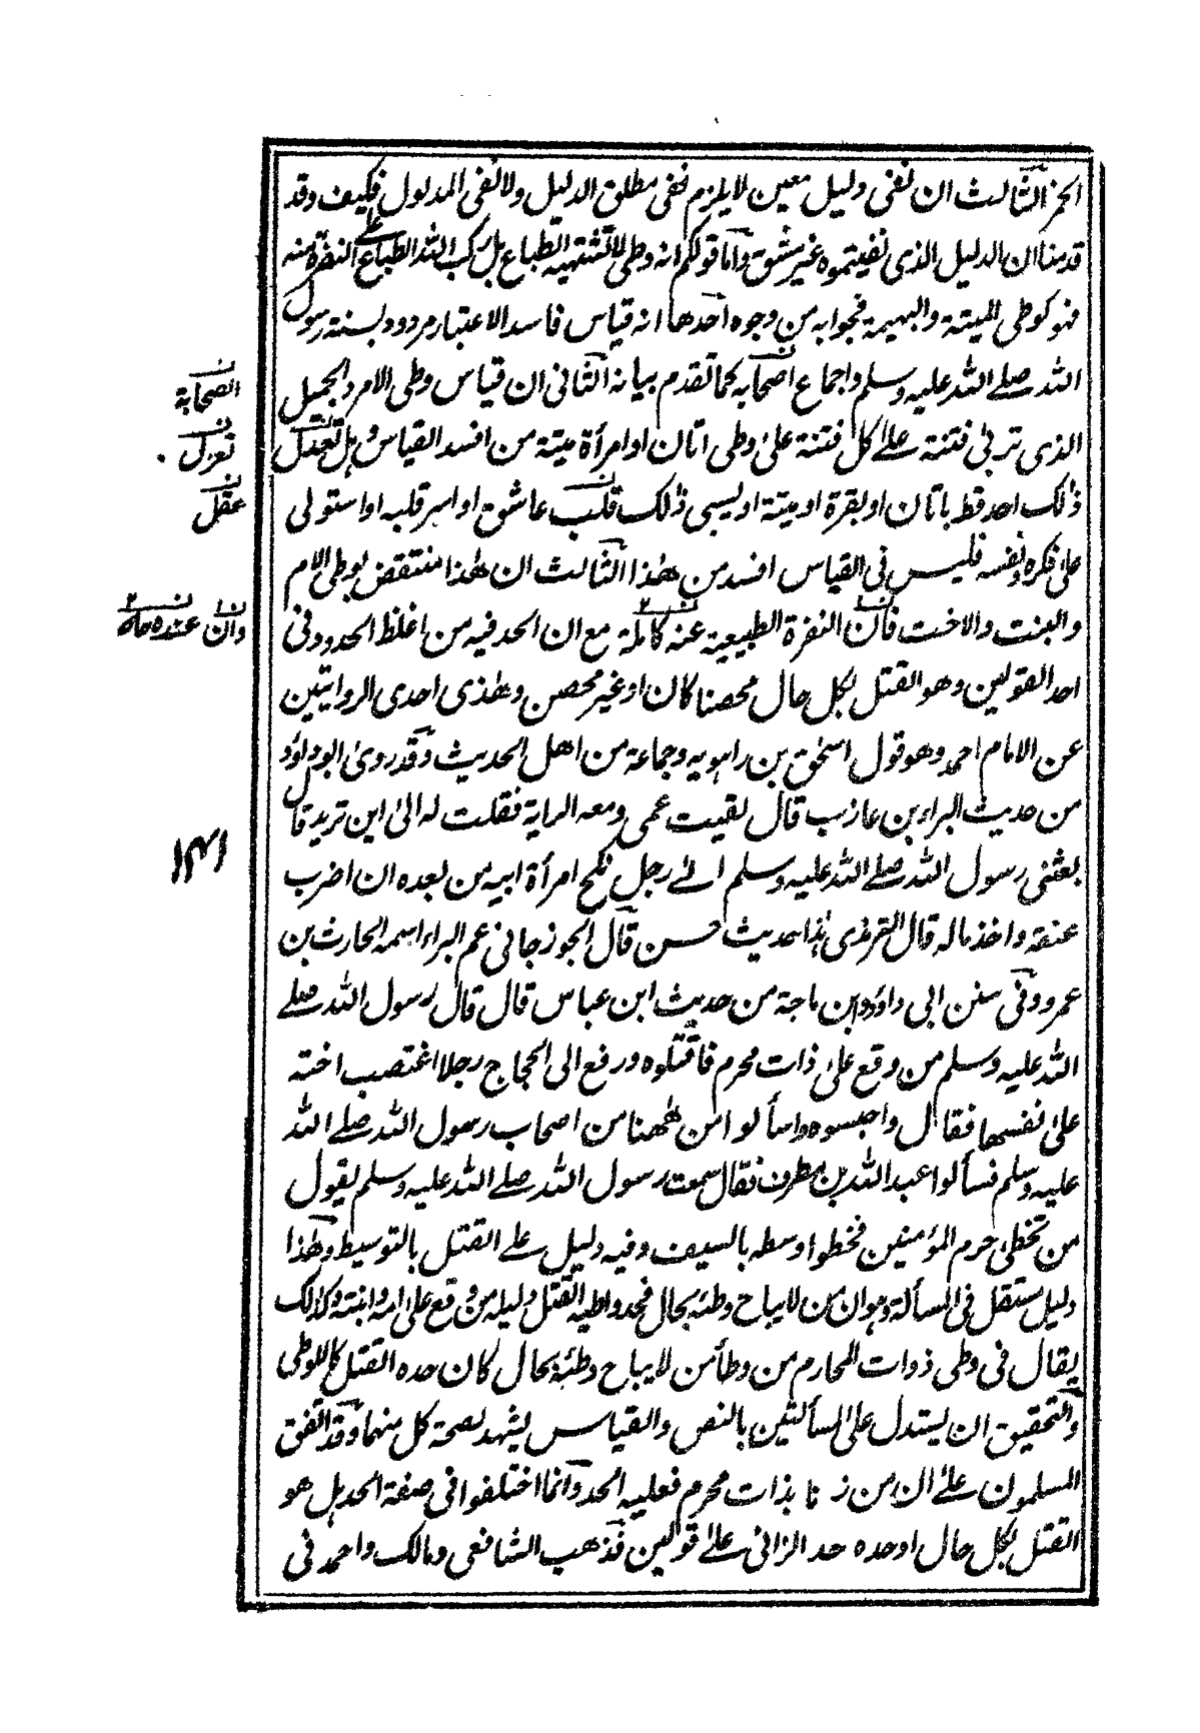 الخز الثالث ان نفى دليل معين لا يلزم نفى مطلق الدليل ولا نفى المدلول فكيف وقد
قدمنا ان الدليل الذى نفيتموه غير منتف واما قولكم انه وطى لا تشتهيه الطباع بل ركب الله الطباع على النفرة منه
فهو كوطى الميتة والبهيمة فجوابه من وجوه احدها انه قياس فاسد الاعتبار مردود بسنة رسول
الله صلے الله عليه وسلم واجماع اصحابه كما تقدم بيانه الثانى ان قياس وطى الامرد الجميل
الذى تربى فتنة علے كل فتنة على وطى اتان او امرأة ميتة من افسد القياس وهل تعدل
ذلك احد قط باتان او بقرة او ميتة او يسبى ذلك قلب عاشق او اسر قلبه او استولى
على فكره ونفسه فليس فى القياس افسد من هذا الثالث ان هذا منتقض بوطى الام
والبنت والاخت فان النفرة الطبيعية عنه كاملة مع ان الحد فيه من اغلظ الحدود فى
احد القولين وهو القتل بكل حال محصنا كان او غير محصن وهذى احدى الروايتين
عن الامام احمد وهو قول اسحٰق بن راهويه وجماعة من اهل الحديث وقد روى ابو داؤد
من حديث البراء بن عازب قال لقيت عمى ومعه الراية فقلت له الى اين تريد قال
بعثنى رسول الله صلے الله عليه وسلم الے رجل نكح امرأة ابيه من بعده ان اضرب
عنقه واخذ ماله قال الترمذى هذا حديث حسن قال الجوزجانى عم البراء اسمه الحارث بن
عمرو وفى سنن ابى داؤد وابن ماجة من حديث ابن عباس قال قال رسول الله صلے
الله عليه وسلم من وقع على ذات محرم فاقتلوه ورفع الى الحجاج رجلا اغتصب اخته
على نفسها فقال واحبسوه واسألوا من ههنا من اصحاب رسول الله صلے الله
عليه وسلم فسألوا عبد الله بن مطرف فقال سمعت رسول الله صلے الله عليه وسلم يقول
من تخطى حرم المؤمنين فخطوا وسطه بالسيف وفيه دليل علے القتل بالتوسيط وهذا
دليل مستقل فى المسألة وهو ان من لا يباح وطئه بحال فحد واطيه القتل دليله من وقع على امه وابنته وكذلك
يقال فى وطى ذوات المحارم من وطأ من لا يباح وطئه بحال كان حده القتل كاللوطى
والتحقيق ان يستدل على المسألتين بالنص والقياس يشهد لصحة كل منهما وقد اتفق
المسلمون علے ان من زنا بذات محرم فعليه الحد وانما اختلفوا فى صفة الحد هل هو
القتل بكل حال او حده حد الزانى علے قولين فذهب الشافعى ومالك واحمد فى
الصحابة
تعزل
عقل
وان عنده
١٤١